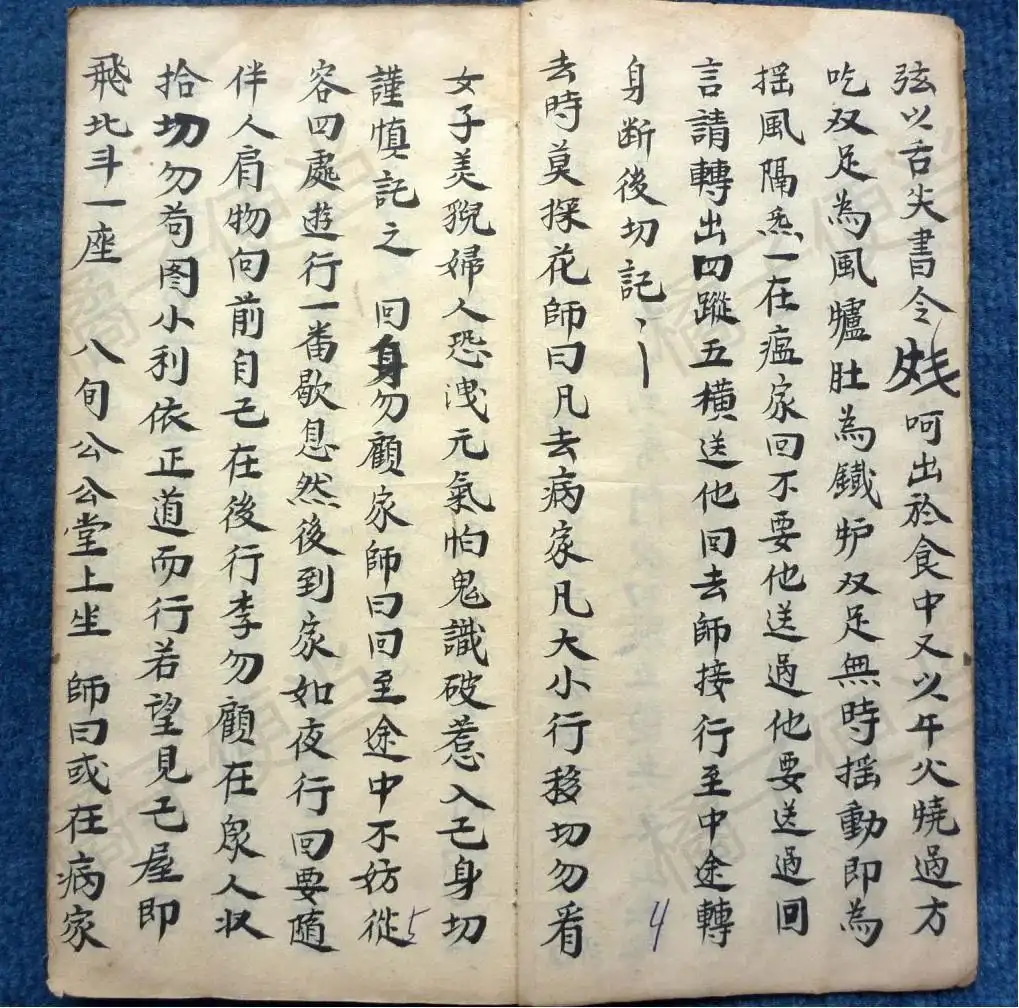 弦以舌尖書令 呵出於食中又以午火燒過方
吃双足為風爐肚為鐵炉双足無時摇動即為
摇風隔炁一在瘟家回不要他送過他要送過回
言請轉出四蹤五横送他回去師接行至中途轉
身断後切記丶丶
去時莫探花師曰凡去病家凡大小行移切勿看
4
女子美貌婦人恐洩元氣怕鬼識破惹入己身切
謹慎記之 回身勿顧家師曰回至途中不妨從
5
容四處遊行一番歇息然後到家如夜行回要隨
伴人肩物向前自己在後行李勿顧在泉人収
拾切勿苟图小利依正道而行若望見己屋即
飛北斗一座 八旬公公堂上坐 師曰或在病家